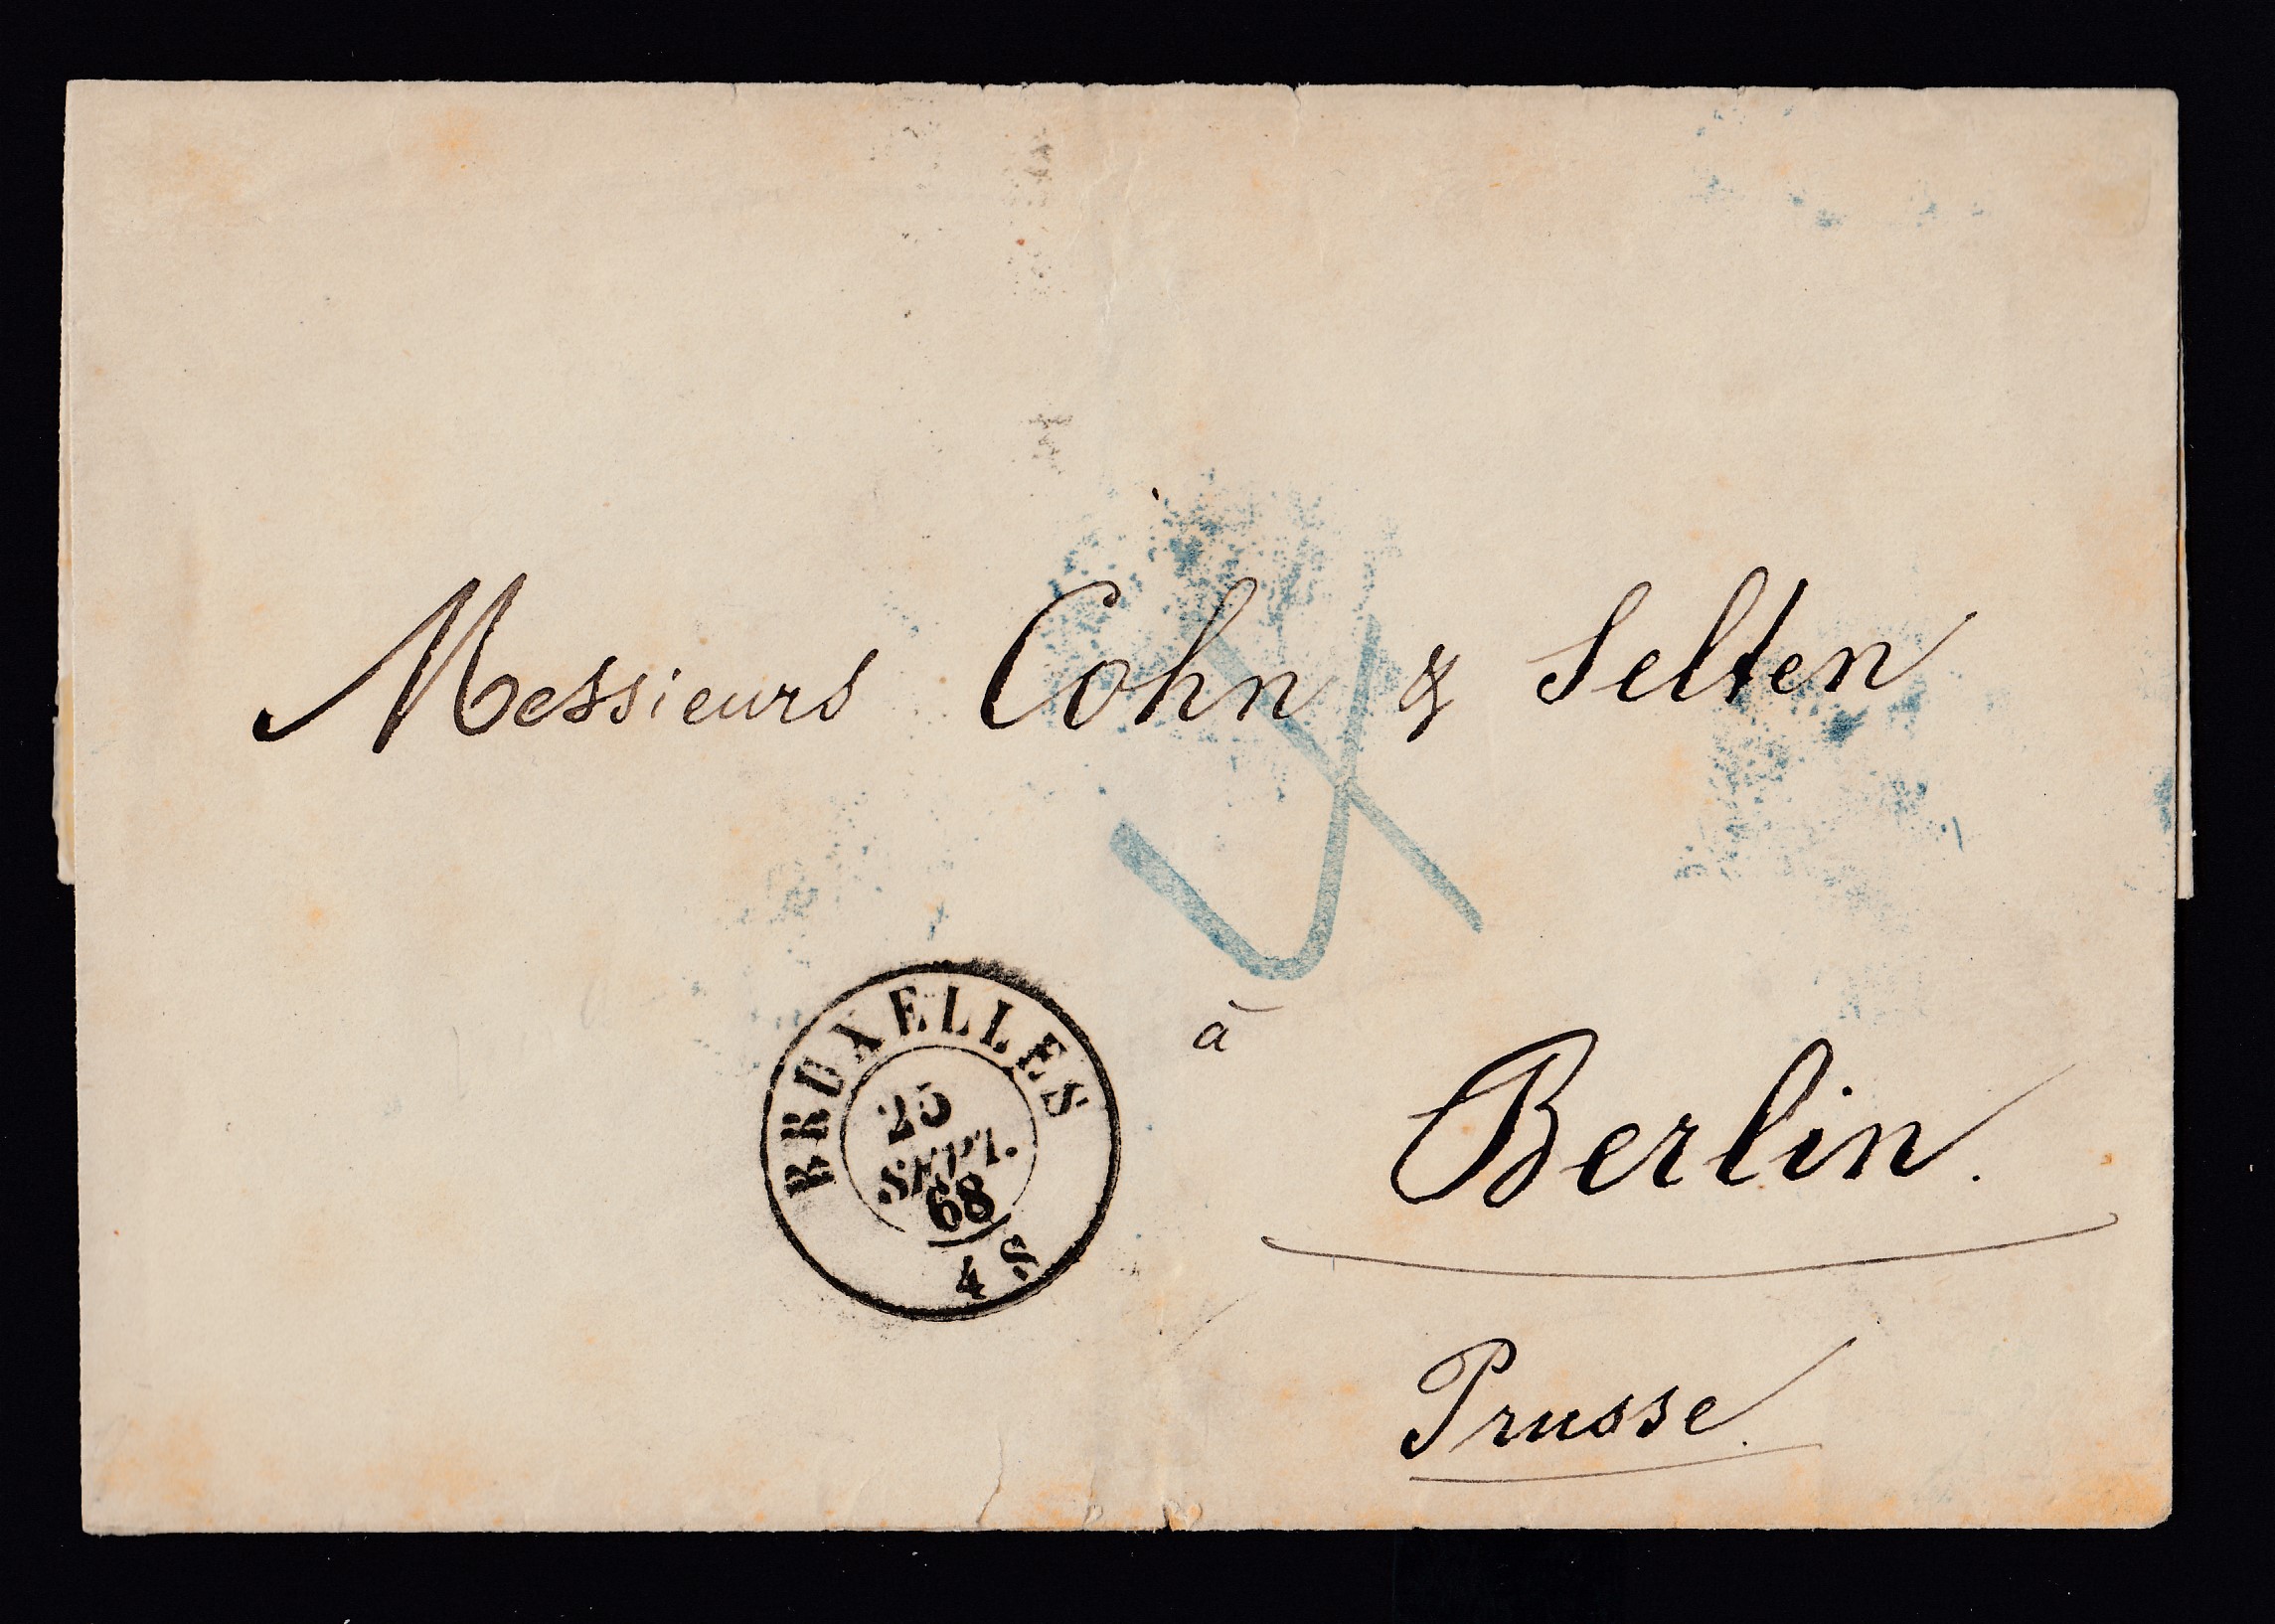 Messieurs Cohn & Selten
à
Berlin.
Prusse.
BRUXELLES
25
SEPT.
68
4 S